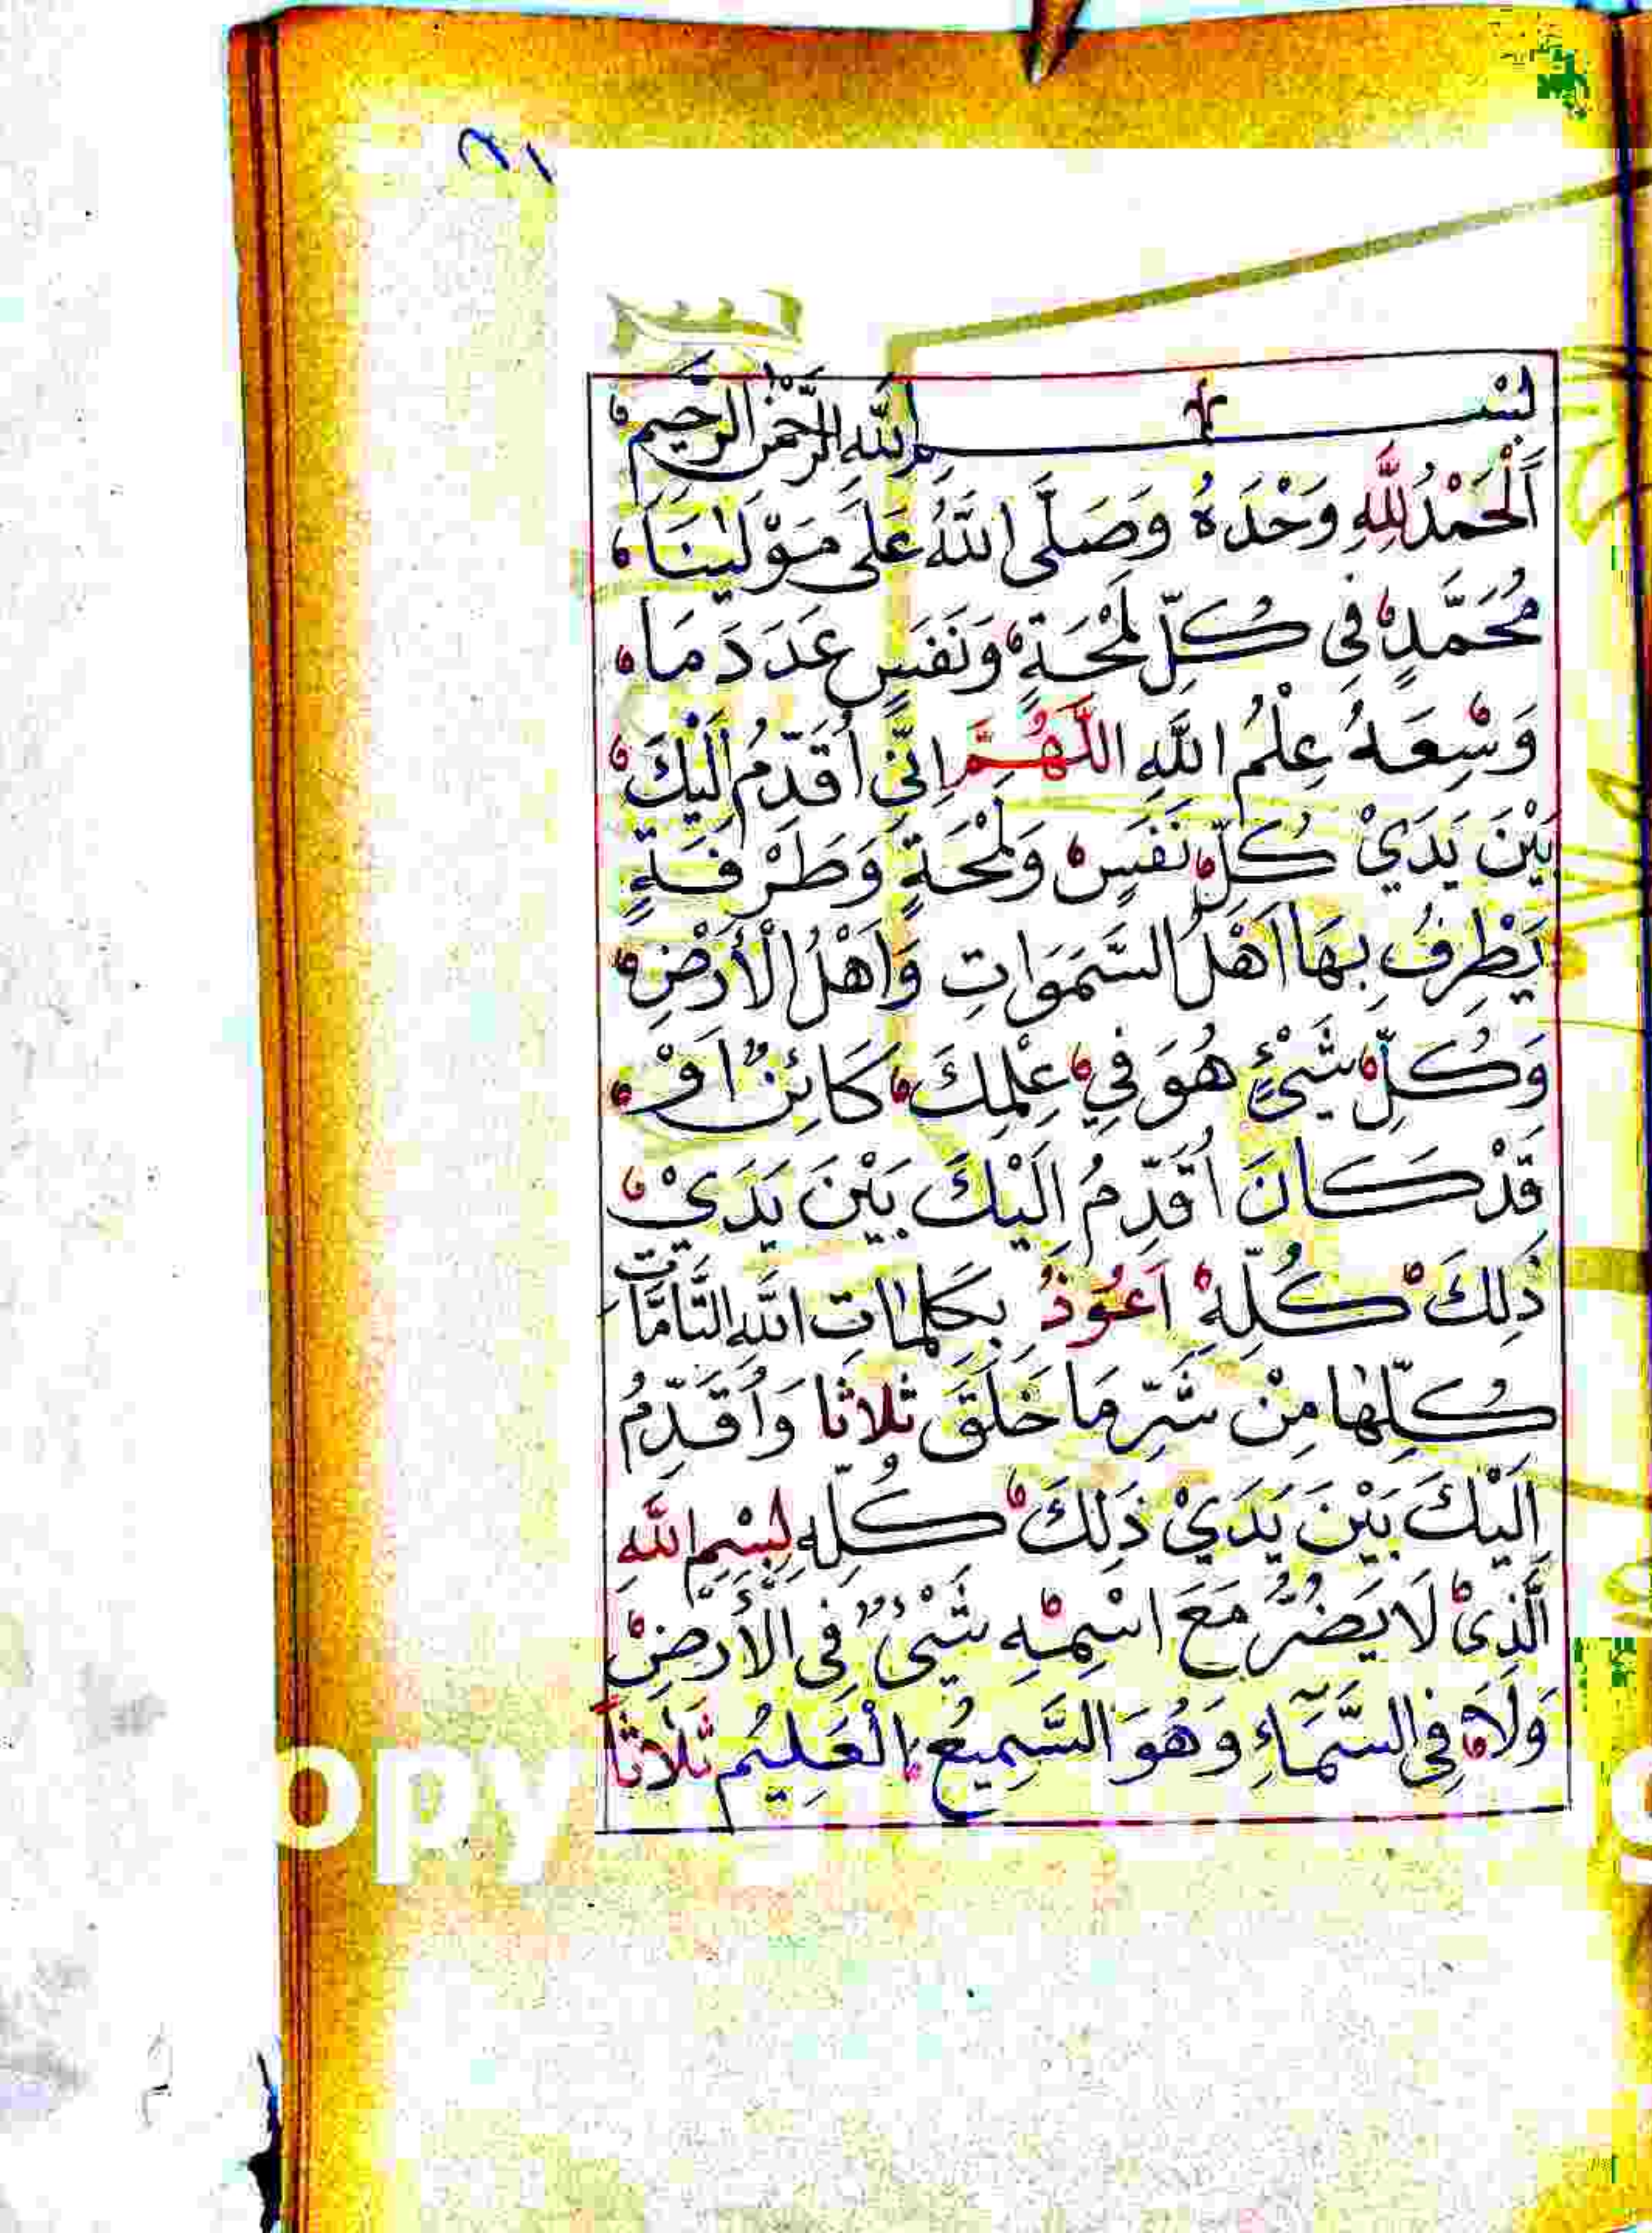 بِسْمِ اللَّهِ الرَّحْمٰنِ الرَّحِيمِ
اَلْحَمْدُ لِلَّهِ وَحْدَهُ وَصَلَّى اللَّهُ عَلَى مَوْلٰينَا
مُحَمَّدٍ فِي كُلِّ لَمْحَةٍ وَنَفَسٍ عَدَدَ مَا
وَسِعَهُ عِلْمُ اللَّهِ اللَّهُمَّ اِنِّي اُقَدِّمُ اِلَيْكَ
بَيْنَ يَدَيْ كُلِّ نَفَسٍ وَلَمْحَةٍ وَطَرْفَةٍ
يَطْرِفُ بِهَا اَهْلُ السَّمَوَاتِ وَاَهْلُ الْأَرْضِ
وَكُلِّ شَيْءٍ هُوَ فِي عِلْمِكَ كَائِنٌ اَوْ
قَدْ كَانَ اُقَدِّمُ اِلَيْكَ بَيْنَ يَدَيْ
ذَلِكَ كُلِّهِ اَعُوذُ بِكَلِمَاتِ اللَّهِ التَّامَّاتِ
كُلِّهَا مِنْ شَرِّ مَا خَلَقَ ثلاثا وَاُقَدِّمُ
اِلَيْكَ بَيْنَ يَدَيْ ذَلِكَ كُلِّهِ بِسْمِ اللَّهِ
الَّذِي لَا يَضُرُّ مَعَ اسْمِهِ شَيْءٌ فِي الْأَرْضِ
وَلَا فِي السَّمَاءِ وَهُوَ السَّمِيعُ الْعَلِيمُ ثَلَاثاً
opy